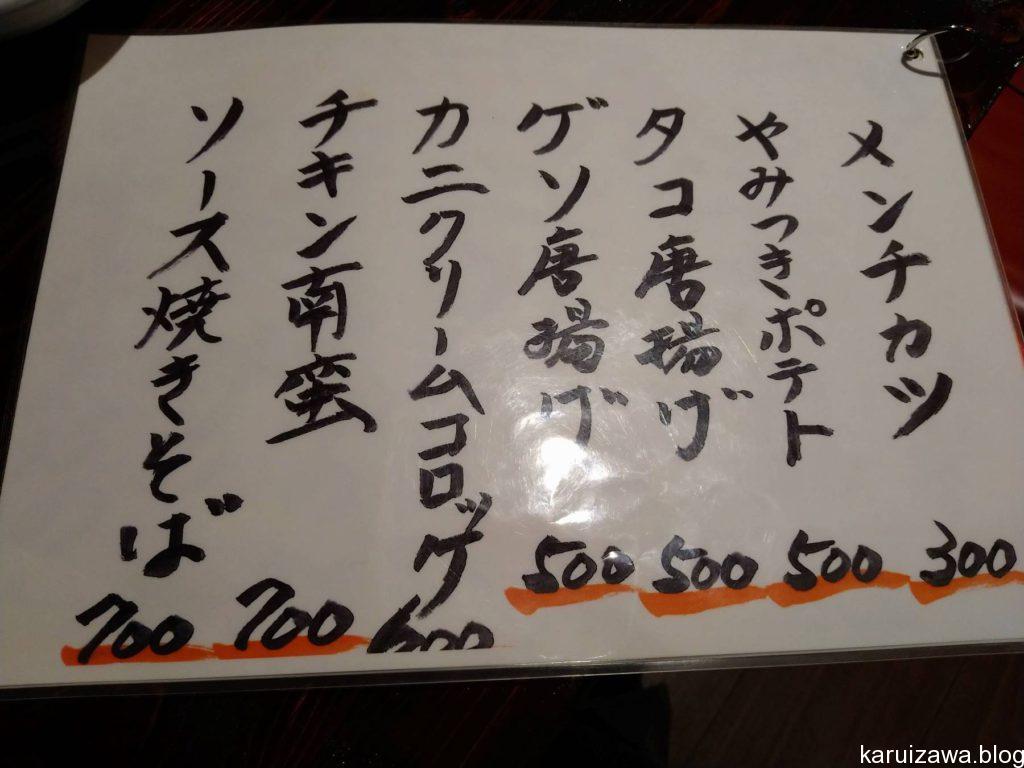 メンチカツ
300
やみつきポテト
500
タコ唐揚げ
500
ゲソ唐揚げ
500
カニクリームコロッケ
600
チキン南蛮
700
ソース焼きそば
700
karuizawa.blog